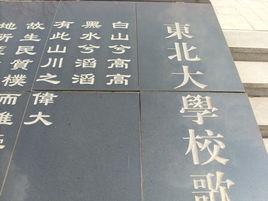 東北大學校歌
白山兮高高
黑水兮滔
有此山川之偉大
故生民質樸
地所
而雄